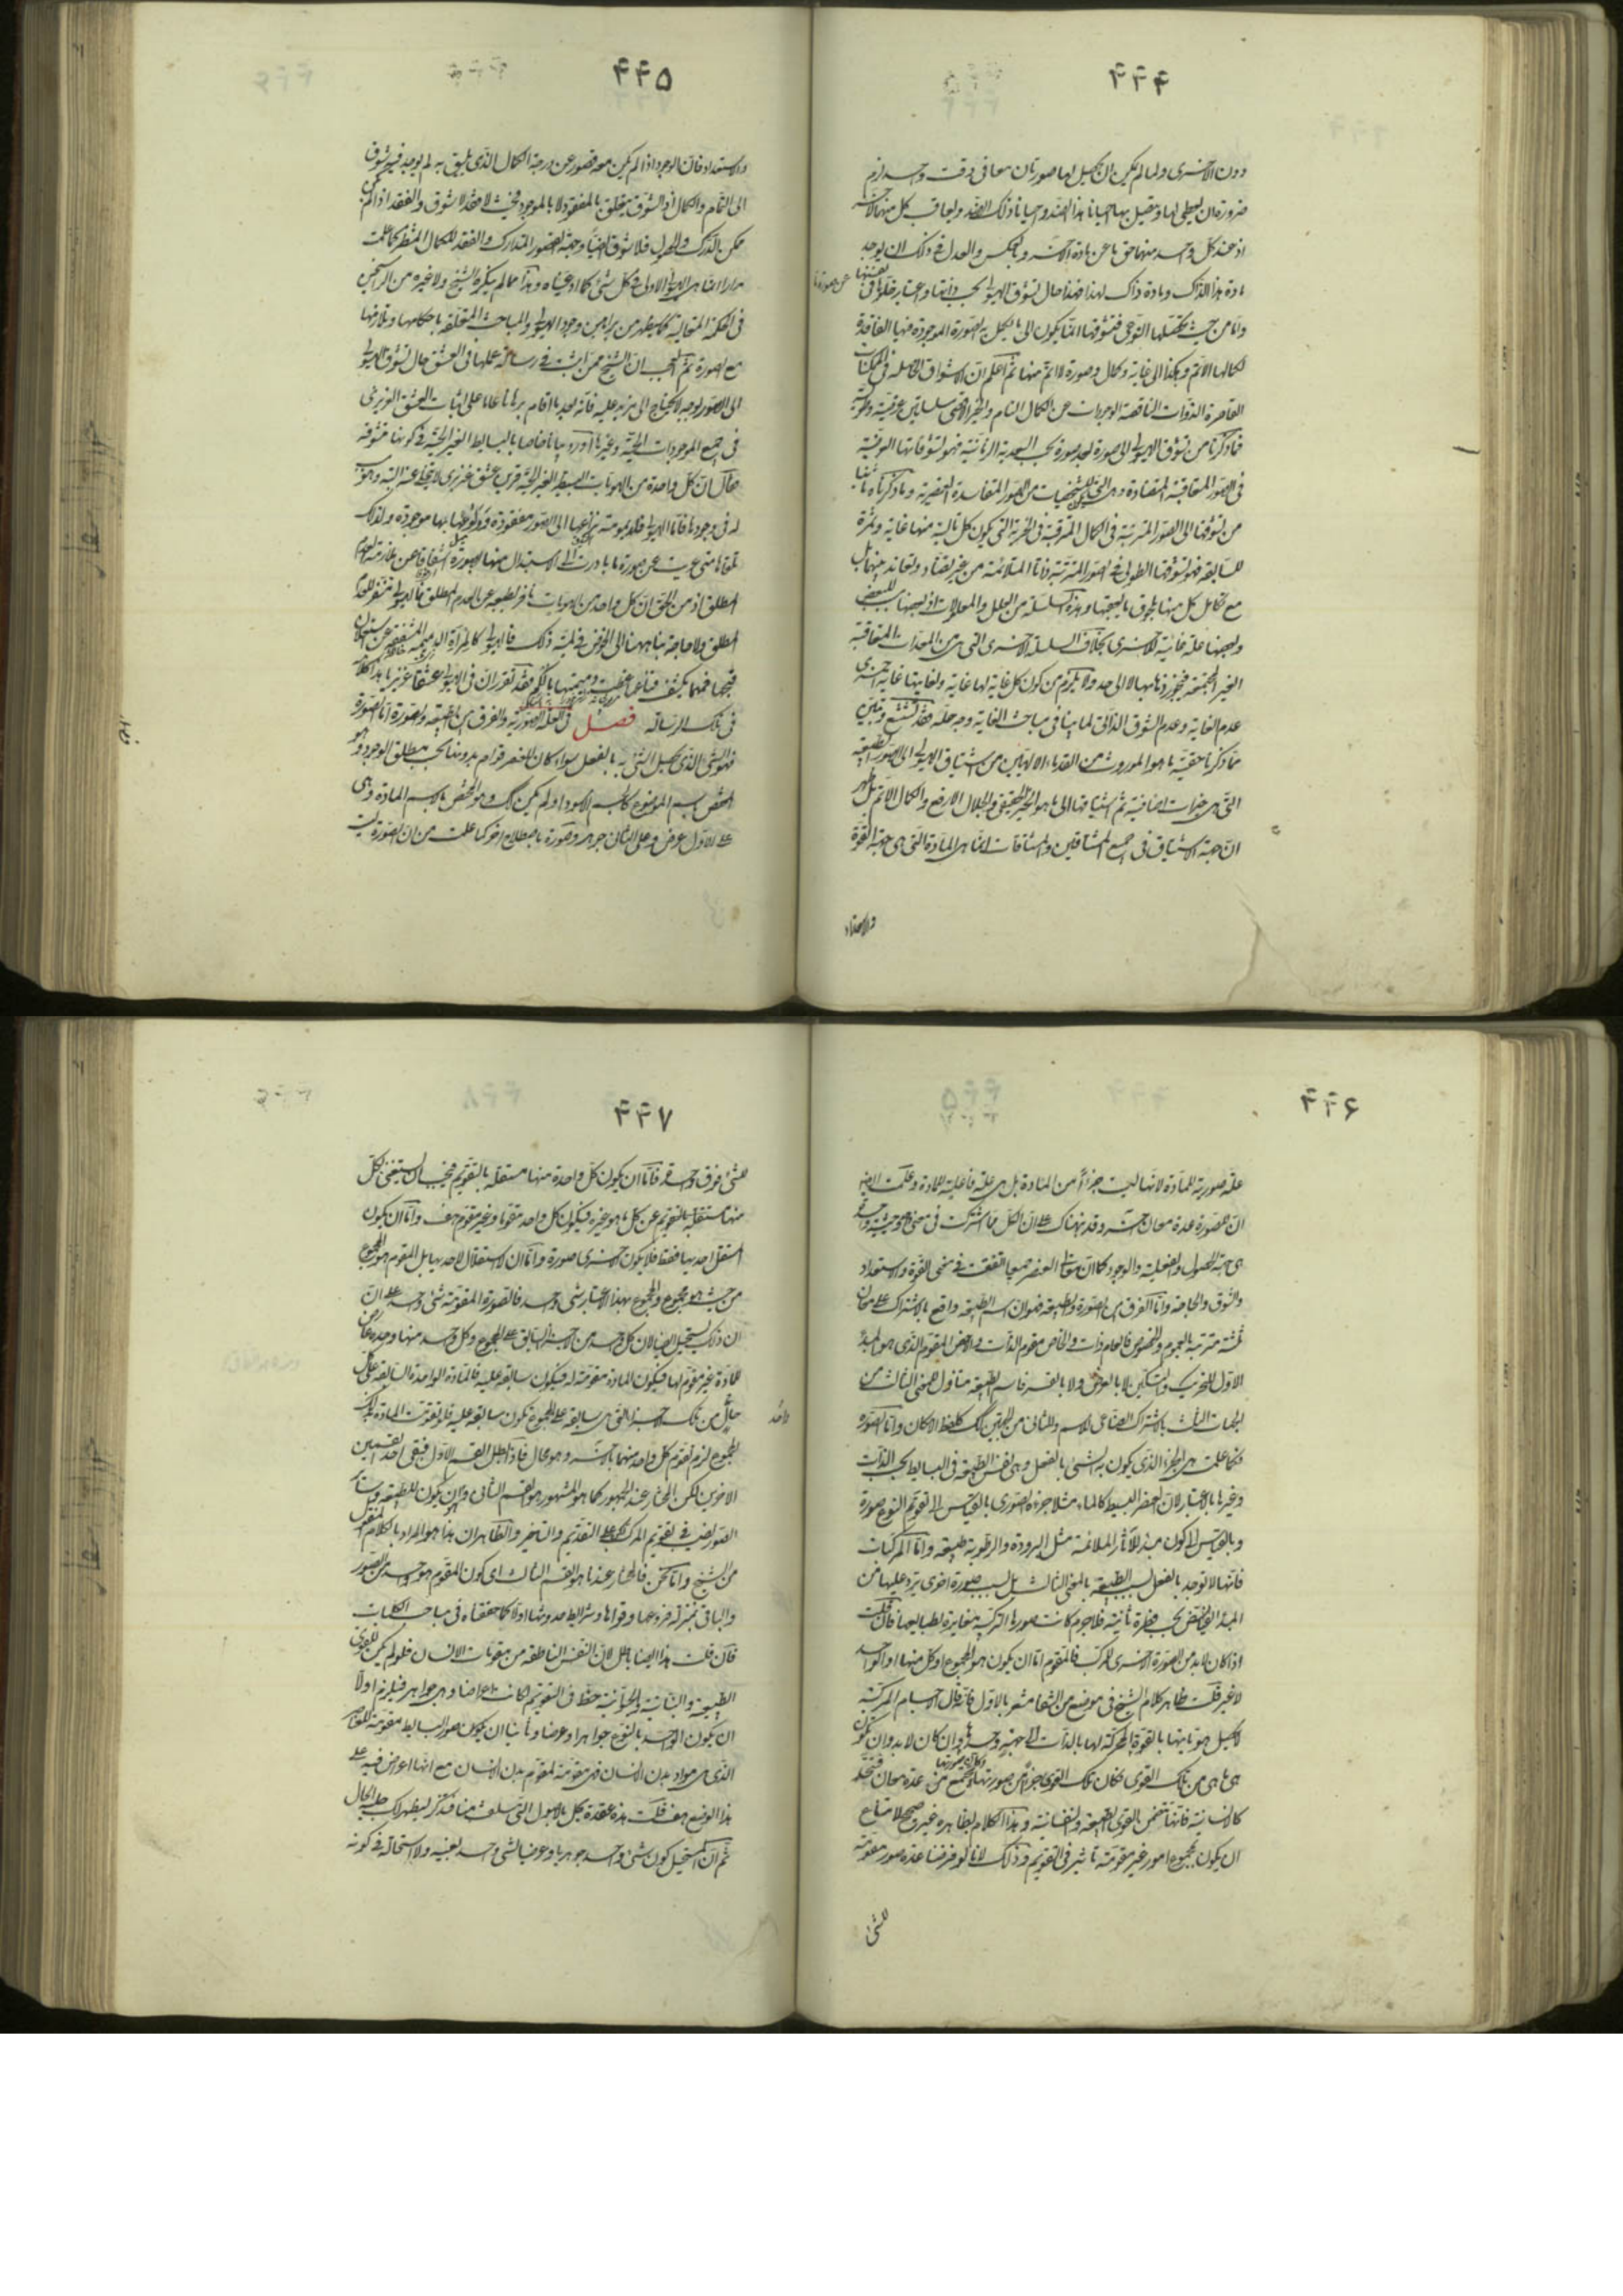 ۴۴۴
دون الاخرى ولما لم يكن ان يحصل لها صورتان معا فى وقت واحد لزم
ضرورة ان يعطى لها و يقبل بها احيانا هذا الضد واحيانا ذلك الضد ويعاقب كل منهما الاخر
اذ عند كل واحد منهما حق ما عن مادة الاخر وبالعكس والعدل فى ذلك ان يوجد
مادة هذا لذاك ومادة ذاك لهذا فهذا حال تشوق الهيولى بحسب ذاتها واعتبار خلوها فى نفسها عن صورة ما
واما من حيث تحصلها النوعى فتشوقها انما يكون الى ما يكمل به الصورة الموجودة فيها الفاقدة
لكمالها الاتم وهكذا الى غاية وكمال وصورة لا اتم منها ثم اعلم ان الاشواق الحاصلة فى الممكنات
القاصرة الذوات الناقصة الوجودات عن الكمال التام والخير الاقصى سلسلتين عرضية وطولية
فما ذكرنا من تشوق الهيولى الى صورة بعد صورة بحسب البعدية الزمانية فهو تشوقاتها العرضية
فى الصور المتعاقبة المتضادة وهى الشخصيات من الصور المتفاسدة العنصرية وما ذكرناه ثانيا
من تشوقها الى الصور المترتبة فى الكمال المترقية فى الخيرية التى يكون كل تالية منها غاية وثمرة
للسابقة فهو تشوقها الطولى فى الصور المترتبة ذاتا المتلائمة من غير تضاد وتعاند بينها بل
مع تكامل كل منها بلحوق ما يعقبها وهذه السلسلة من العلل والمعلولات اذ بعضها سبب للبعض
وبعضها علة غائية للاخرى بخلاف السلسلة الاخرى التى هى من المعدات المتعاقبة
الغير المجتمعة فيجوز ذهابها لا الى حد ولا يلزم من كون كل غاية لها غاية ولغايتها غاية اخرى
عدم الغاية وعدم الشوق الذاتى لما بينا فى مباحث الغاية وجه حله فقد تشعشع وتبين
مما ذكرنا حقية ما هو الموروث من القدماء الالهيين من اشتياق الهيولى الى الصور الطبيعية
التى هى خيرات اضافية ثم اشتياقها الى ما هو الخير الحقيقى والجلال الارفع والكمال الاتم بل ظهر
ان جهة الاشتياق فى جميع المشتاقين والمشتاقات انما هى المادة التى هى جهة القوة
والاستعداد
۴۴۵
والاستعداد فان الوجود اذا لم يكن معه قصور عن درجة الكمال الذى يليق به لم يوجد فيه شوق
الى التمام والكمال اذ الشوق يتعلق بالمفقود لا بالموجود فحيث لا فقد لا شوق والفقد اذا لم يكن
ممكن التدرك والحصول فلا شوق ايضا وجهة القصور المتدارك والفقد للكمال المنتظر كما علمت
مرارا انما هى الهيولى الاولى فى كل شئ كما ادعيناه وهذا مما لم ينكره الشيخ ولا غيره من الراسخين
فى الحكمة المتعالية كما يظهر من براهين وجود الهيولى والمباحث المتعلقة باحكامها وتلازمها
مع الصورة ثم العجب ان الشيخ ممن اثبت فى رسالة عملها فى العشق حال تشوق الهيولى
الى الصور بوجه لا يحتاج الى مزيد عليه فانه بعد ما اقام برهانا عاما على اثبات العشق الغريزى
فى جميع الموجودات الحية وغيرها اورد بيانا خاصا بالبسائط الغير الحية فى كونها متشوقة
فقال ان كل واحدة من الهويات البسيطة الغير الحية قرين عشق غريزى لا يتخلى عنه البتة وهو سبب
له فى وجودها فاما الهيولى فلديمومة نزاعها الى الصور مفقودة وولوعها بها موجودة ولذلك
تلقاها متى عريت عن صورة ما بادرت الى الاستبدال عنها بصورة اخرى اشفاقا عن ملازمة العدم
المطلق اذ من الحق ان كل واحد من الهويات نافر بطبعه عن العدم المطلق فالهيولى تنفر للعدم
المطلق ولا حاجة بنا ههنا الى الخوض فى لمية ذلك فالهيولى كالمراة الدميمة المشفقة عن استعلان
قبحها فمهما تكشف قناعها غطت دميمتها بالكم فقد تقرر ان فى الهيولى عشقا غريزيا هذا كلامه
فى تلك الرسالة فصل فى العلة الصورية والفرق بين الطبيعة والصورة اما الصورة
فهو الشئ الذى يحصل الشئ به بالفعل سواء كان للعنصر قوام بدونها بحسب مطلق الوجود وهو
المختص باسم الموضوع كالجسم الاسود او لم يكن كذلك وهو المختص باسم المادة وهى
على الاول عرض وعلى الثانى جوهر وصورة باصطلاح اخر كما علمت من ان الصورة ليست
۴۴۶
علة صورية للمادة لانها ليست جزءا من المادة بل هى علة فاعلية للمادة وعلمت ايضا
ان للصورة عدة معان اخر وقد نبهناك على ان الكل مما اشتركت فى معنى هو حيثية واحدة
هى جهة الحصول والفعلية والوجود كما ان معانى العنصر جميعا اتفقت فى معنى القوة والاستعداد
والشوق والحاجة واما الفرق بين الصورة والطبيعة فهو ان اسم الطبيعة واقع بالاشتراك على معان
ثلثة مترتبة بالعموم والخصوص فالعام ذات كل شئ والخاص مقوم الذات والاخص المقوم الذى هو المبدأ
الاول للتحريك والتسكين لا بالعرض ولا بالقسر فاسم الطبيعة متناول للمعنى الثالث من
الجهات الثلث بالاشتراك الصناعى للاسم وللثانى من الجهتين كذلك كلفظ الامكان واما الصورة
فكما علمت هى الجزء الذى يكون به الشئ بالفعل وهى نفس الطبيعة فى البسائط بحسب الذات
وغيرها بالاعتبار لان العنصر البسيط كالماء مثلا جزءه الصورى بالقياس الى تقويم النوع صورة
وبالقياس الى كون مبدأ للآثار الملائمة مثل البرودة والرطوبة طبيعة واما المركبات
فانها لا توجد بالفعل بسبب الطبيعة بالمعنى الثالث بل بسبب صورة اخرى يرد عليها من
المبدء الفياض بحسب فطرة ثانية فلا جرم كانت صورها التركيبية مغايرة لطبايعها فان قلت
اذا كان لابد من الصورة الاخرى للمركب فالمقوم اما ان يكون هو المجموع او كل منها او الواحد
لا غير قلت ظاهر كلام الشيخ فى موضع من الشفا مشعر بالاول فانه قال الاجسام المركبة
لا يحصل هوياتها بالقوة المحركة لها بالذات الى جهة وحدها وان كان لابد وان يكون
هى ما هى من تلك القوى فكان تلك القوى جزء من صورتها وكان صورتها تجتمع من عدة معان فتتحد
كالانسانية فانها تتضمن القوى الطبيعية والنفسانية وهذا الكلام بظاهره غير صحيح لامتناع
ان يكون لمجموع امور غير مقومة تاثير فى التقويم وذلك لانا لو فرضنا عدة صور مقومة
للشئ
۴۴۷
للشئ فوق واحدة فاما ان يكون كل واحدة منها مستقلة بالتقويم فيجب ان يستغنى بكل
منها مستقلة بالتقويم عن كل ما هو غيره فيكون كل واحد مقوما وغير مقوم هف واما ان يكون
المستقل احديها فقط فلا يكون الاخرى صورة واما ان لا استقلال لاحديها بل المقوم هو المجموع
من حيث هو مجموع والمجموع بهذا الاعتبار شئ واحد فالصورة المقومة شئ واحد على ان
ان ذلك يستحيل ايضا لان كل واحد من اجزائه سابق على المجموع وكل واحد منها وحده عارض
للمادة غير مقوم لها فيكون المادة مقومة له فيكون سابقة عليه فالمادة الواحدة السابقة على كل
واحد من تلك الاجزاء التى هى سابقة على المجموع تكون سابقة عليه فلو تقومت المادة بذلك
المجموع لزم تقوم كل واحد منهما بالاخر وهو محال فاذا بطل القسم الاول فبقى احد القسمين
الاخيرين لكن المختار عند الجمهور كما هو المشهور هو القسم الثانى وان يكون للطبيعة وسائر
الصور نصيب فى تقويم المركب على التقديم والتاخير والظاهر ان هذا هو المراد بالكلام المنقول
من الشيخ واما نحن فالمختار عندنا هو القسم الثالث اى كون المقوم هو واحد من الصور
والباقى بمنزلة فروعها وقواها وشرائط حدوثها اولا كما حققناه فى مباحث الكليات
فان قلت هذا ايضا باطل لان النفس الناطقة من مقومات الانسان فلو لم يكن للقوى
الطبيعية والنباتية والحيوانية حظ فى التقويم لكانت اعراضا وهى جواهر فيلزم اولا
ان يكون الواحد بالنوع جوهرا وعرضا وثانيا ان يكون صور البسائط مقومة للعناصر
الذى هى مواد بدن الانسان فهى مقومة لمقوم بدن الانسان مع انها اعراض فيه على
هذا الوضع هف قلت هذه عقدة تحل بالاصول التى سلفت منا فتذكر ليظهر لك جلية الحال
ثم ان المستحيل كون شئ واحد جوهريا وعرضيا لشئ واحد بعينه ولا استحالة فى كونه